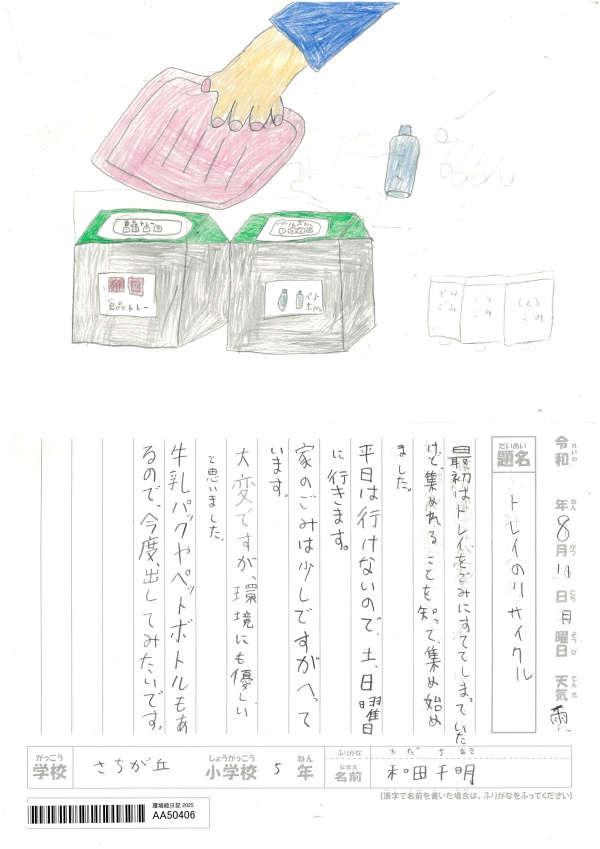 食品トレー
食品トレー
ペット
ボトル
ごみ
ごみ
ごみ
令和 年 8月 18日 月曜日 天気 雨
れいわ ねん がつ にち ようび てんき
だいめい
題名 トレイのリサイクル
最初はトレイをごみにすててしまっていた
けど、集めれることを知って、集め始め
ました。
平日は行けないので、土、日曜日
に行きます。
家のごみは少しですがへって
います。
大変ですが、環境にも優しい
と思いました。
牛乳パックやペットボトルもあ
るので、今度、出してみたいです。
がっこう しょうがっこう ねん
学校 さちが丘 小学校 5年
ふりがな わだ
なまえ
名前 和田千明
(漢字で名前を書いた場合は、ふりがなをふってください)
環境絵日記 2025
AA50406